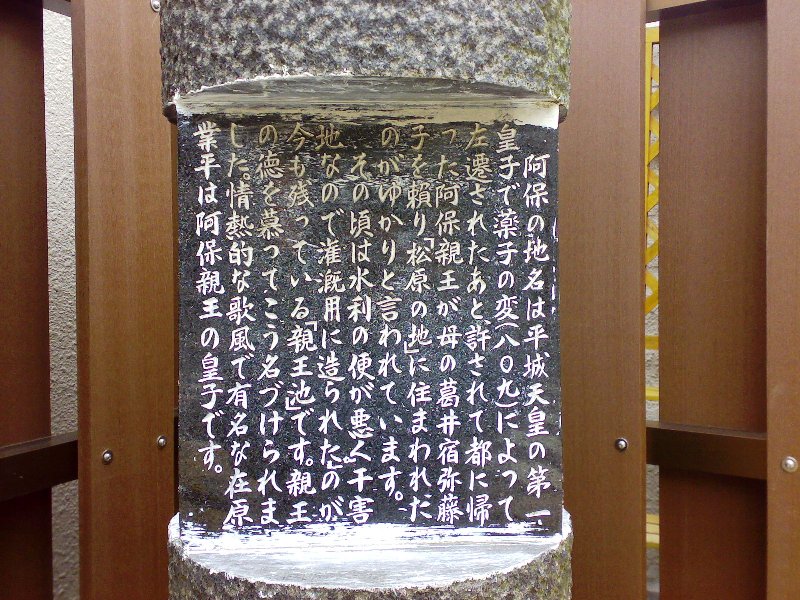 阿保の地名は平城天皇の第一
皇子で薬子の変(八〇九によって
左遷されたあと許されて都に帰
った阿保親王が母の葛井宿弥藤
子を頼り「松原の地」に住まわれた
のがゆかりと言われています。
その頃は水利の便が悪く干害
地なので潅漑用に造られた」のが
今も残っている「親王池」です。親王
の徳を慕ってこう名づけられま
した。情熱的な歌風で有名な在原
業平は阿保親王の皇子です。